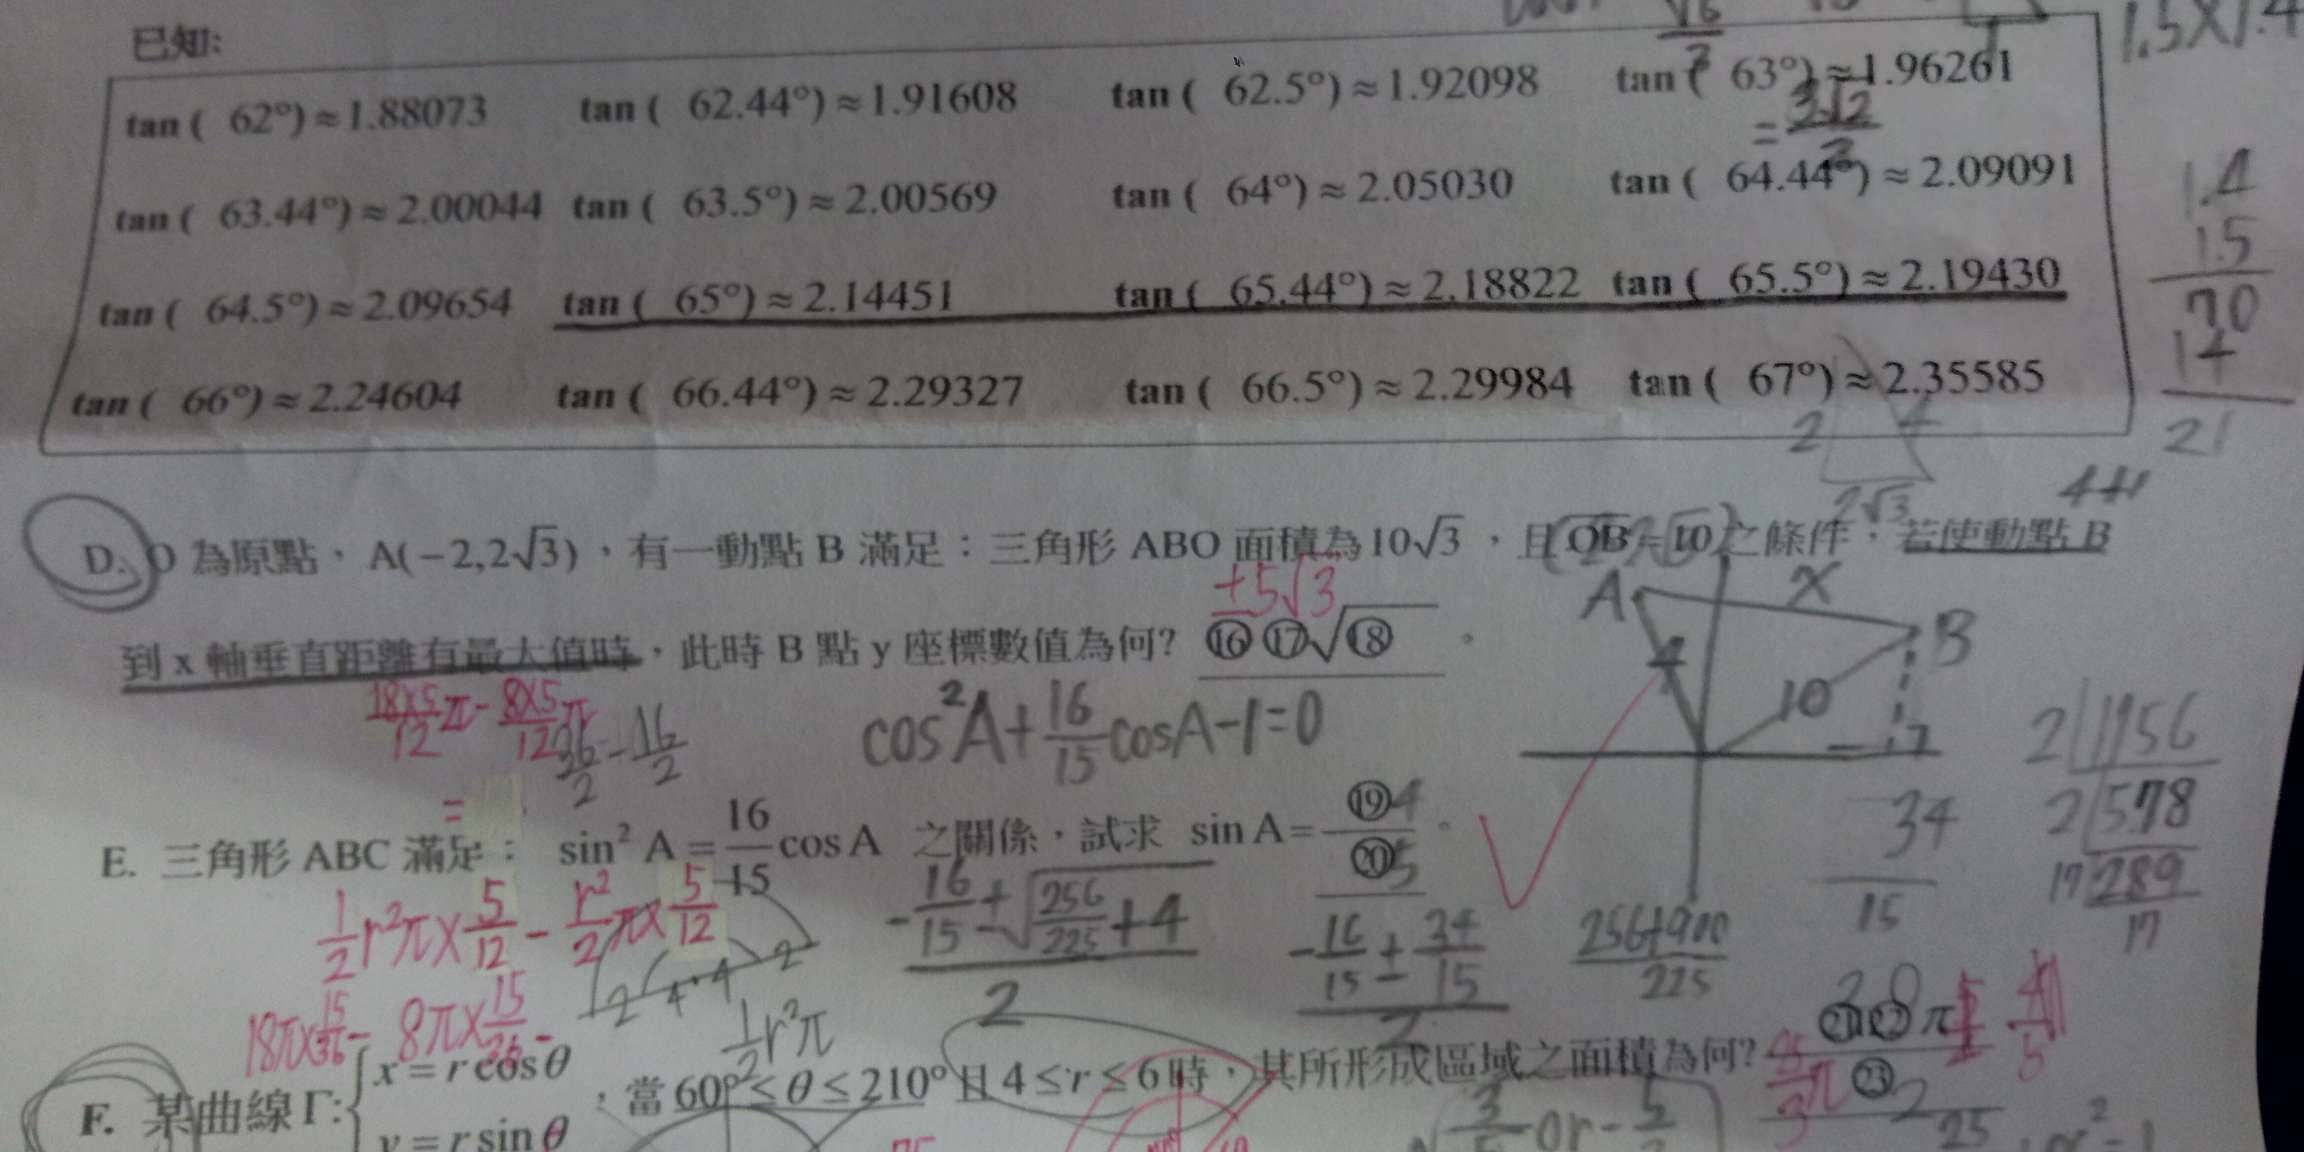 已知:
1.5×1.4
tan( 62°)≈1.88073 tan( 62.44°)≈1.91608 tan( 62.5°)≈1.92098 tan( 63°)≈1.96261
=3√2/2
tan( 63.44°)≈2.00044 tan( 63.5°)≈2.00569 tan( 64°)≈2.05030 tan( 64.44°)≈2.09091
1.4
1.5
70
14
21
tan( 64.5°)≈2.09654 tan( 65°)≈2.14451 tan( 65.44°)≈2.18822 tan( 65.5°)≈2.19430
tan( 66°)≈2.24604 tan( 66.44°)≈2.29327 tan( 66.5°)≈2.29984 tan( 67°)≈2.35585
2 4
2√3
D. O 為原點,A(−2,2√3),有一動點 B 滿足:三角形 ABO 面積為10√3,且OB=10之條件,若使動點 B
±5√3
到 x 軸垂直距離有最大值時,此時 B 點 y 座標數值為何? ⑯⑰√⑱。
A X B
4 10
18×5/12π-8×5/12π
36/2-16/2
=
cos²A+16/15cosA-1=0
2 1156
2 578
17 289
17
E. 三角形 ABC 滿足: sin² A=16/15 cos A 之關係,試求 sin A=⑲/⑳。
4
5
34
15
1/2r²π×5/12-r²/2π×5/12
-16/15±√256/225+4
2
-16/15±34/15
2
256+900
225
18π×15/36-8π×15/36=
1/2r²π
F. 某曲線Γ:{x=r cosθ
y=r sinθ
,當60°≤θ≤210°且4≤r≤6時,其所形成區域之面積為何?㉑㉒π/㉓
3/5or-5/3
25